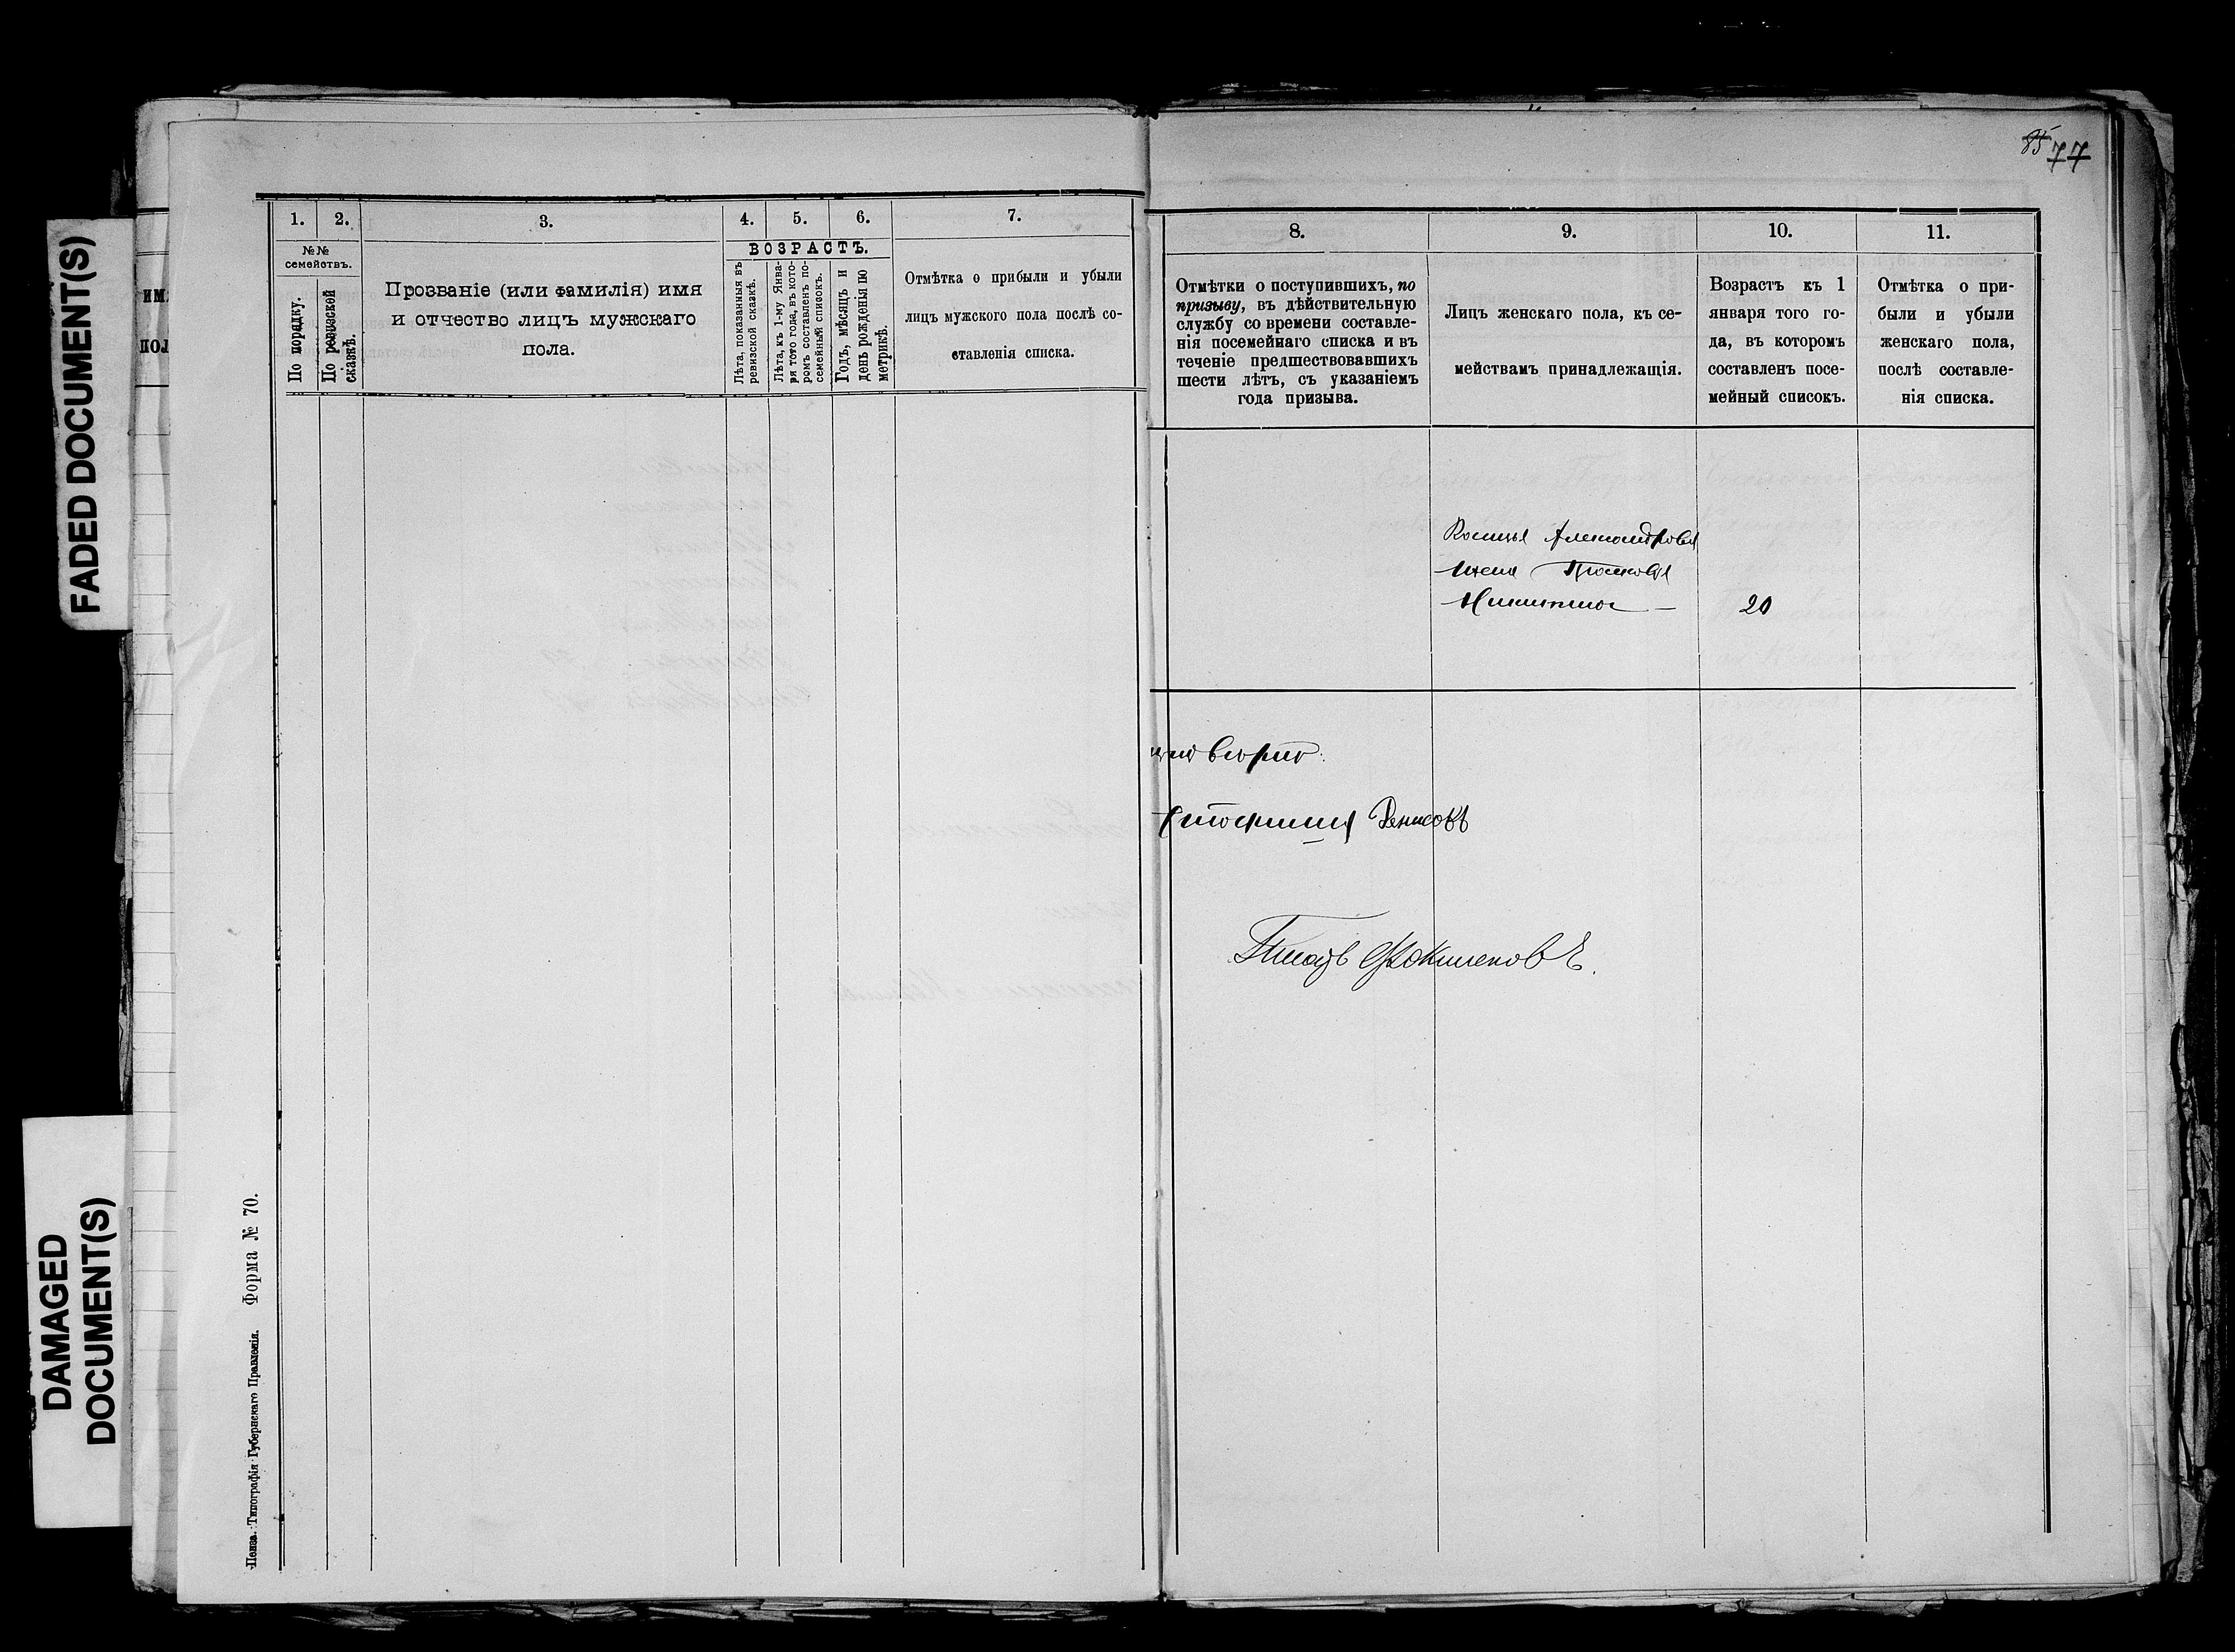 FADED DOCUMENT(S)
DAMAGED
DOCUMENT(S)
ИМ
ПОЛ
77
1.
2.
3.
4.
5.
6.
7.
№№
семействъ.
По порядку.
По ревизской
сказкѣ.
Прозваніе (или фамилія) имя
и отчество лицъ мужскаго
пола.
ВОЗРАСТЪ.
Лѣта, показанныя въ
ревизской сказкѣ.
Лѣта, къ 1-му Янва-
ря того года, въ кото-
ромъ составленъ по-
семейный списокъ.
Годъ, мѣсяцъ и
день рожденья по
метрикѣ.
Отмѣтка о прибыли и убыли
лицъ мужского пола послѣ со-
ставленія списка.
8.
9.
10.
11.
Отмѣтки о поступившихъ, по
призыву, въ дѣйствительную
службу со времени составле-
нія посемейнаго списка и въ
теченіе предшествовавшихъ
шести лѣтъ, съ указаніемъ
года призыва.
Лицъ женскаго пола, къ се-
мействамъ принадлежащія.
Возрастъ къ 1
января того го-
да, въ которомъ
составленъ посе-
мейный списокъ.
Отмѣтка о при-
были и убыли
женскаго пола,
послѣ составле-
нія списка.
Александрова
жена
Никитина — 20
Денисовъ
Писарь
Пенза. Типографія Губернскаго Правленія. Форма № 70.